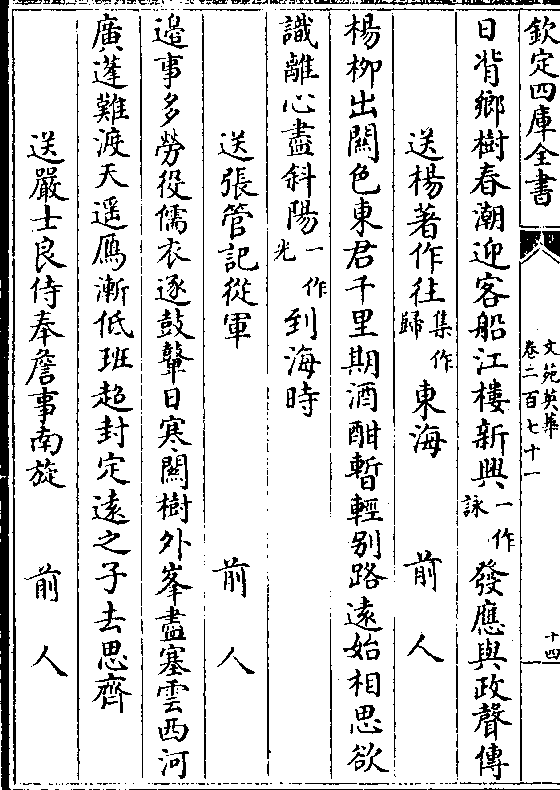 欽定四庫全書
文苑英華
卷二百七十一
十四
日背鄉樹春潮迎客船江樓新興一作詠發應與政聲傳
送楊著作往集作歸東海　前人
楊柳出關色東君千里期酒酣暫輕别路遠始相思欲
識離心盡斜陽一作光到海時
送張管記從軍　前人
邉事多勞役儒衣逐鼓鼙日寒關樹外峯盡塞雲西河
廣蓬難渡天遥鴈漸低班超封定逺之子去思齊
送嚴士良侍奉詹事南旋　前人